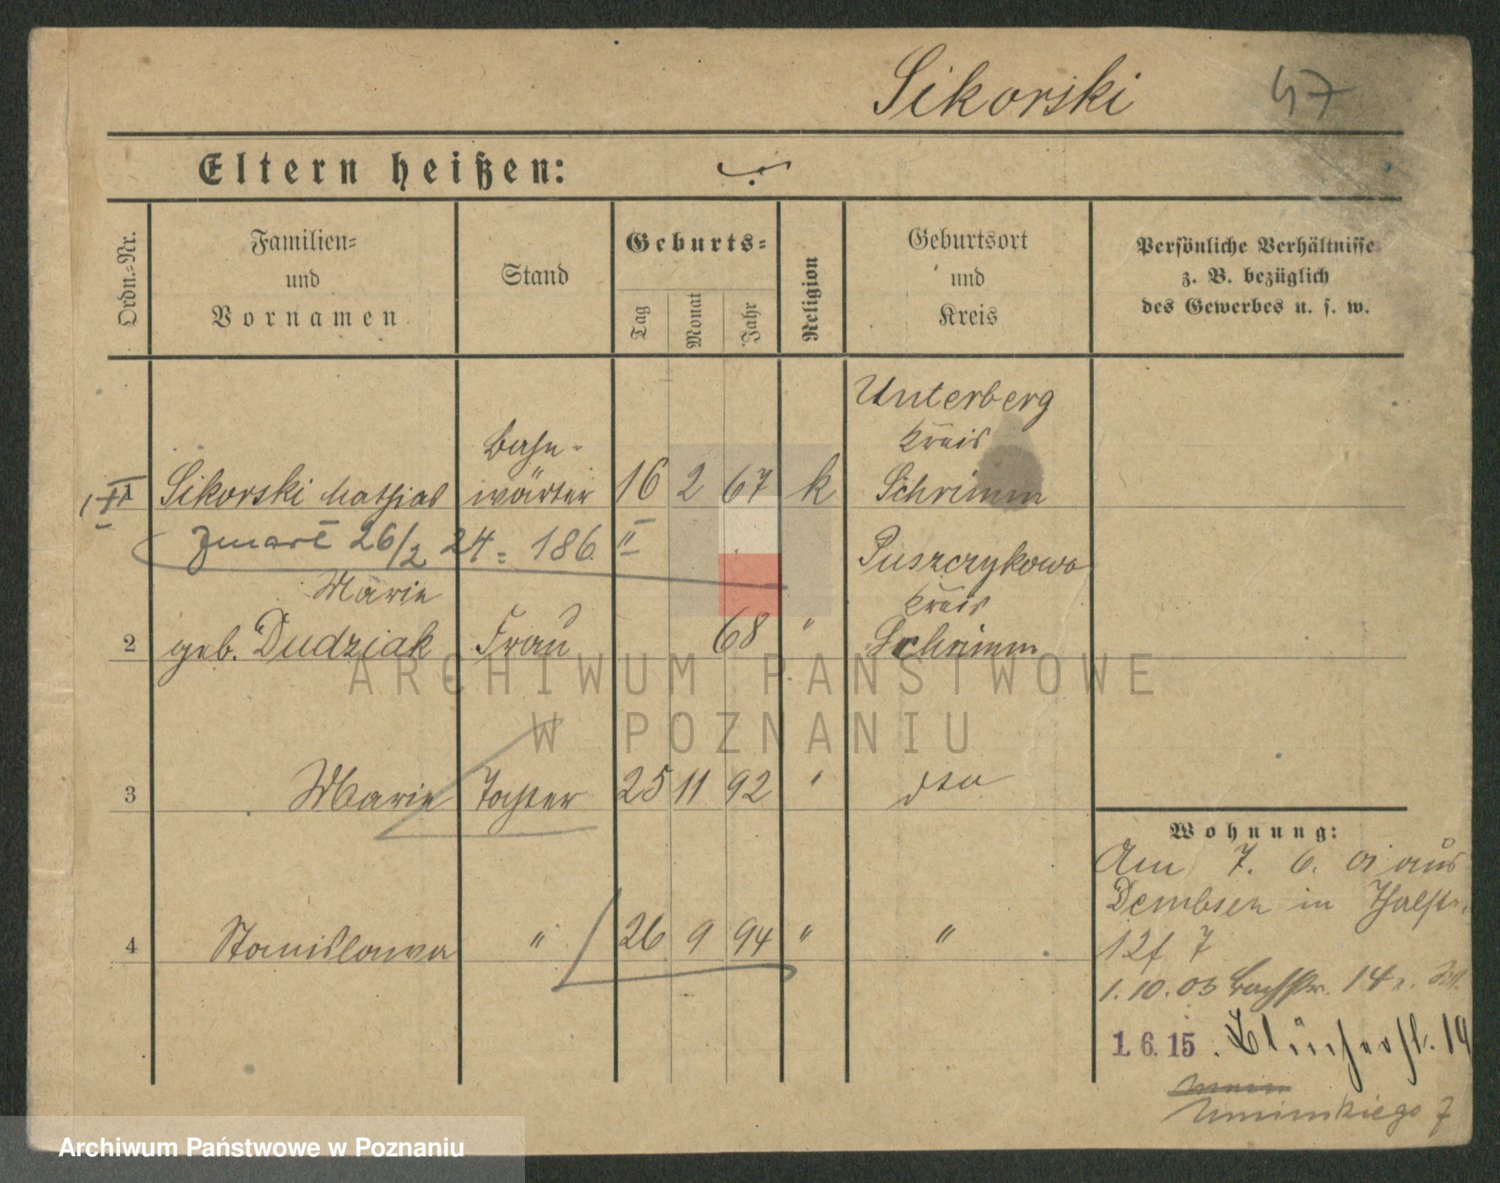 Sikorski 47
Eltern heißen:
Ordn.-Nr.
Familien-
und
Vornamen
Stand
Geburts-
Tag
Monat
Jahr
Religion
Geburtsort
und
Kreis
Persönliche Verhältnisse
z. B. bezüglich
des Gewerbes u. s. w.
1 Sikorski Mathias Bahn-
wärter 16 2 67 k Unterberg
Kreis
Schrimm
zmarł 26/2 24 = 186 II
2 Marie
geb. Dudziak Frau 68 " Puszczykowo
Kreis
Schrimm
3 Marie Tochter 25 11 92 " dto
4 Stanislawa " 26 9 94 " "
Wohnung:
Am 7. 6. 01 aus
Dembsen in Thalstr.
12 f 7
1. 10. 03 Bachstr. 14
1. 6. 15. Blücherstr. 14
Umińskiego 7
ARCHIWUM PAŃSTWOWE
W POZNANIU
Archiwum Państwowe w Poznaniu